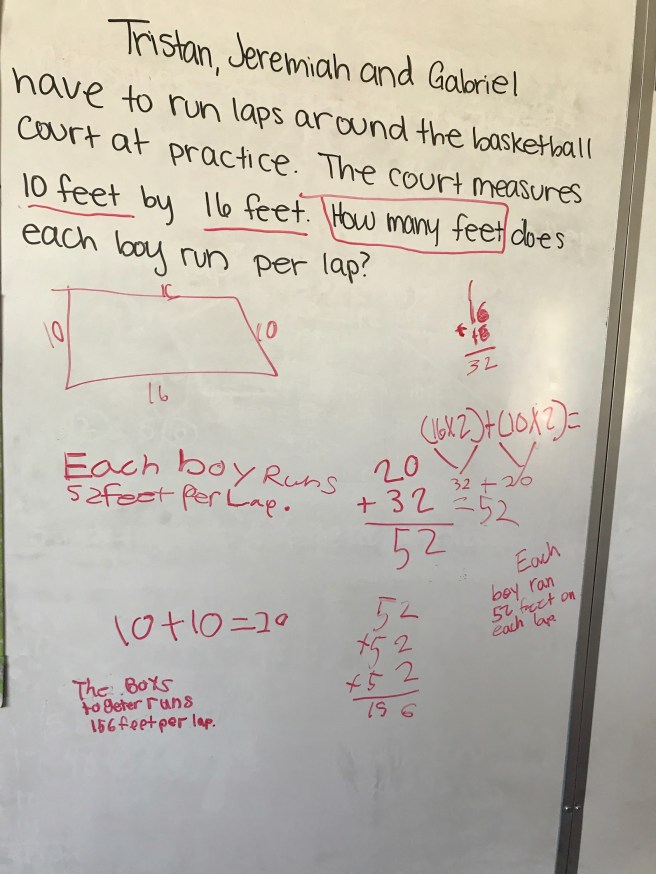 Tristan, Jeremiah and Gabriel
have to run laps around the basketball
court at practice. The court measures
10 feet by 16 feet. How many feet does
each boy run per lap?
10
10
16
16
+ 16
32
(16X2)+(10X2)=
32 + 20
=52
Each boy Runs
52feet Per Lap.
20
+ 32
52
Each
boy ran
52 feet on
each lap
10+10=20
52
+52
+52
156
The Boys
to Geter runs
156feet per lap.